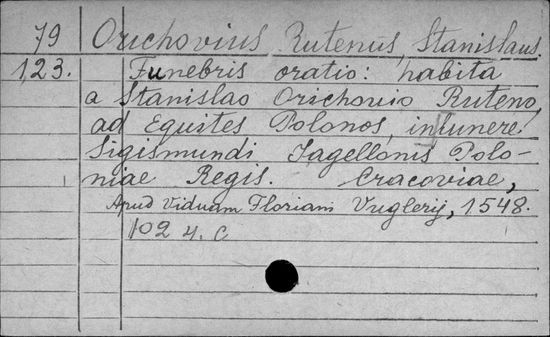 79 Orichovius Rutenus, Stanislaus.
123. Funebris oratio: habita
a Stanislao Orichovio Ruteno,
ad Equites Polonos, in funere
Sigismundi Jagellonis Polo-
niae Regis. Cracoviae,
Apud Viduam Floriani Vnglerij, 1548.
102 4. c